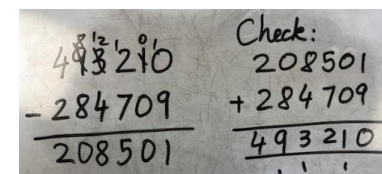 8 12 0 1
493210
- 284709
208501
Check:
208501
+ 284709
493210
1 1 1